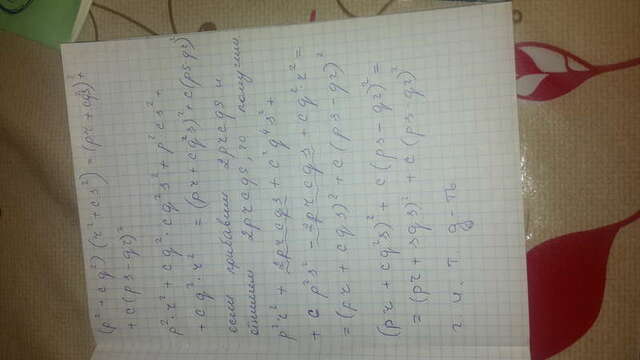 (p² + cq²)(r² + cs²) = (pr + cqs)² +
+ c(ps - qr)²
p²·r² + cq²·cq²s² + p²cs² +
+ cq²·r² = (pr + cq²s)² + c(ps qr)²
если прибавим 2prcqs и
отнимем 2prcqs, то получим
p²r² + 2prcqs + c²q⁴s² +
+ c p²s² - 2prcqs + cq²·r² =
= (pr + cqs)² + c(ps - qr)²
(pr + cq²s)² + c(ps - qr)² =
= (pr + sqs)² + c(ps qr)²
ч. т. д-ть